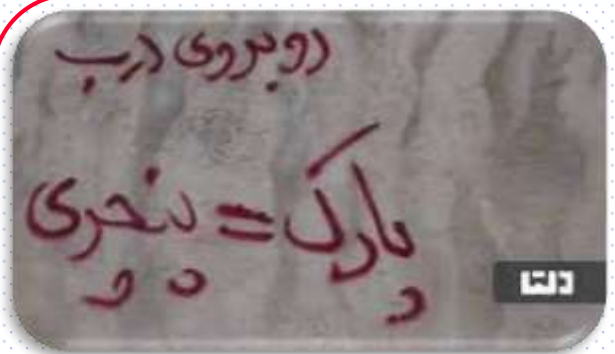 روبروی درب
پارک = پنچری
دلتا